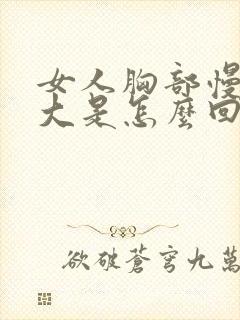 女人胸部慢
大是怎麼回
欲破蒼穹九萬